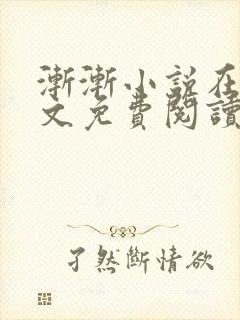 漸漸小説在
文免費閱讀
孑然斷情欲